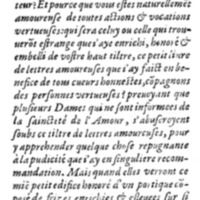 teur: Et pource que vous estes naturellemẽt
amoureuse de toutes actiõs & vocations
vertueuses: qui sera celuy ou celle qui trou-
uerõt estrange que i'aye enrichi, honoré &
embelli de vostre haut tiltre, ce petit liure
de lettres amoureuses que i'ay fait en be-
nefice de tous cueurs honnestes, cõpagnõs
des personnes vertueuses? preuoyant que
plusieurs Dames qui ne sont informees de
la saincteté de l'Amour, s'abuseroyent
soubs ce tiltre de lettres amoureuses, pour
y apprehender quelque chose repugnante
à la pudicité que i'ay en singuliere recom-
mandation. Mais quand elles verront ce
miẽ petit edifice honoré d'vn portique cõpo-
sé de frizes enrichies & esleuees sur si